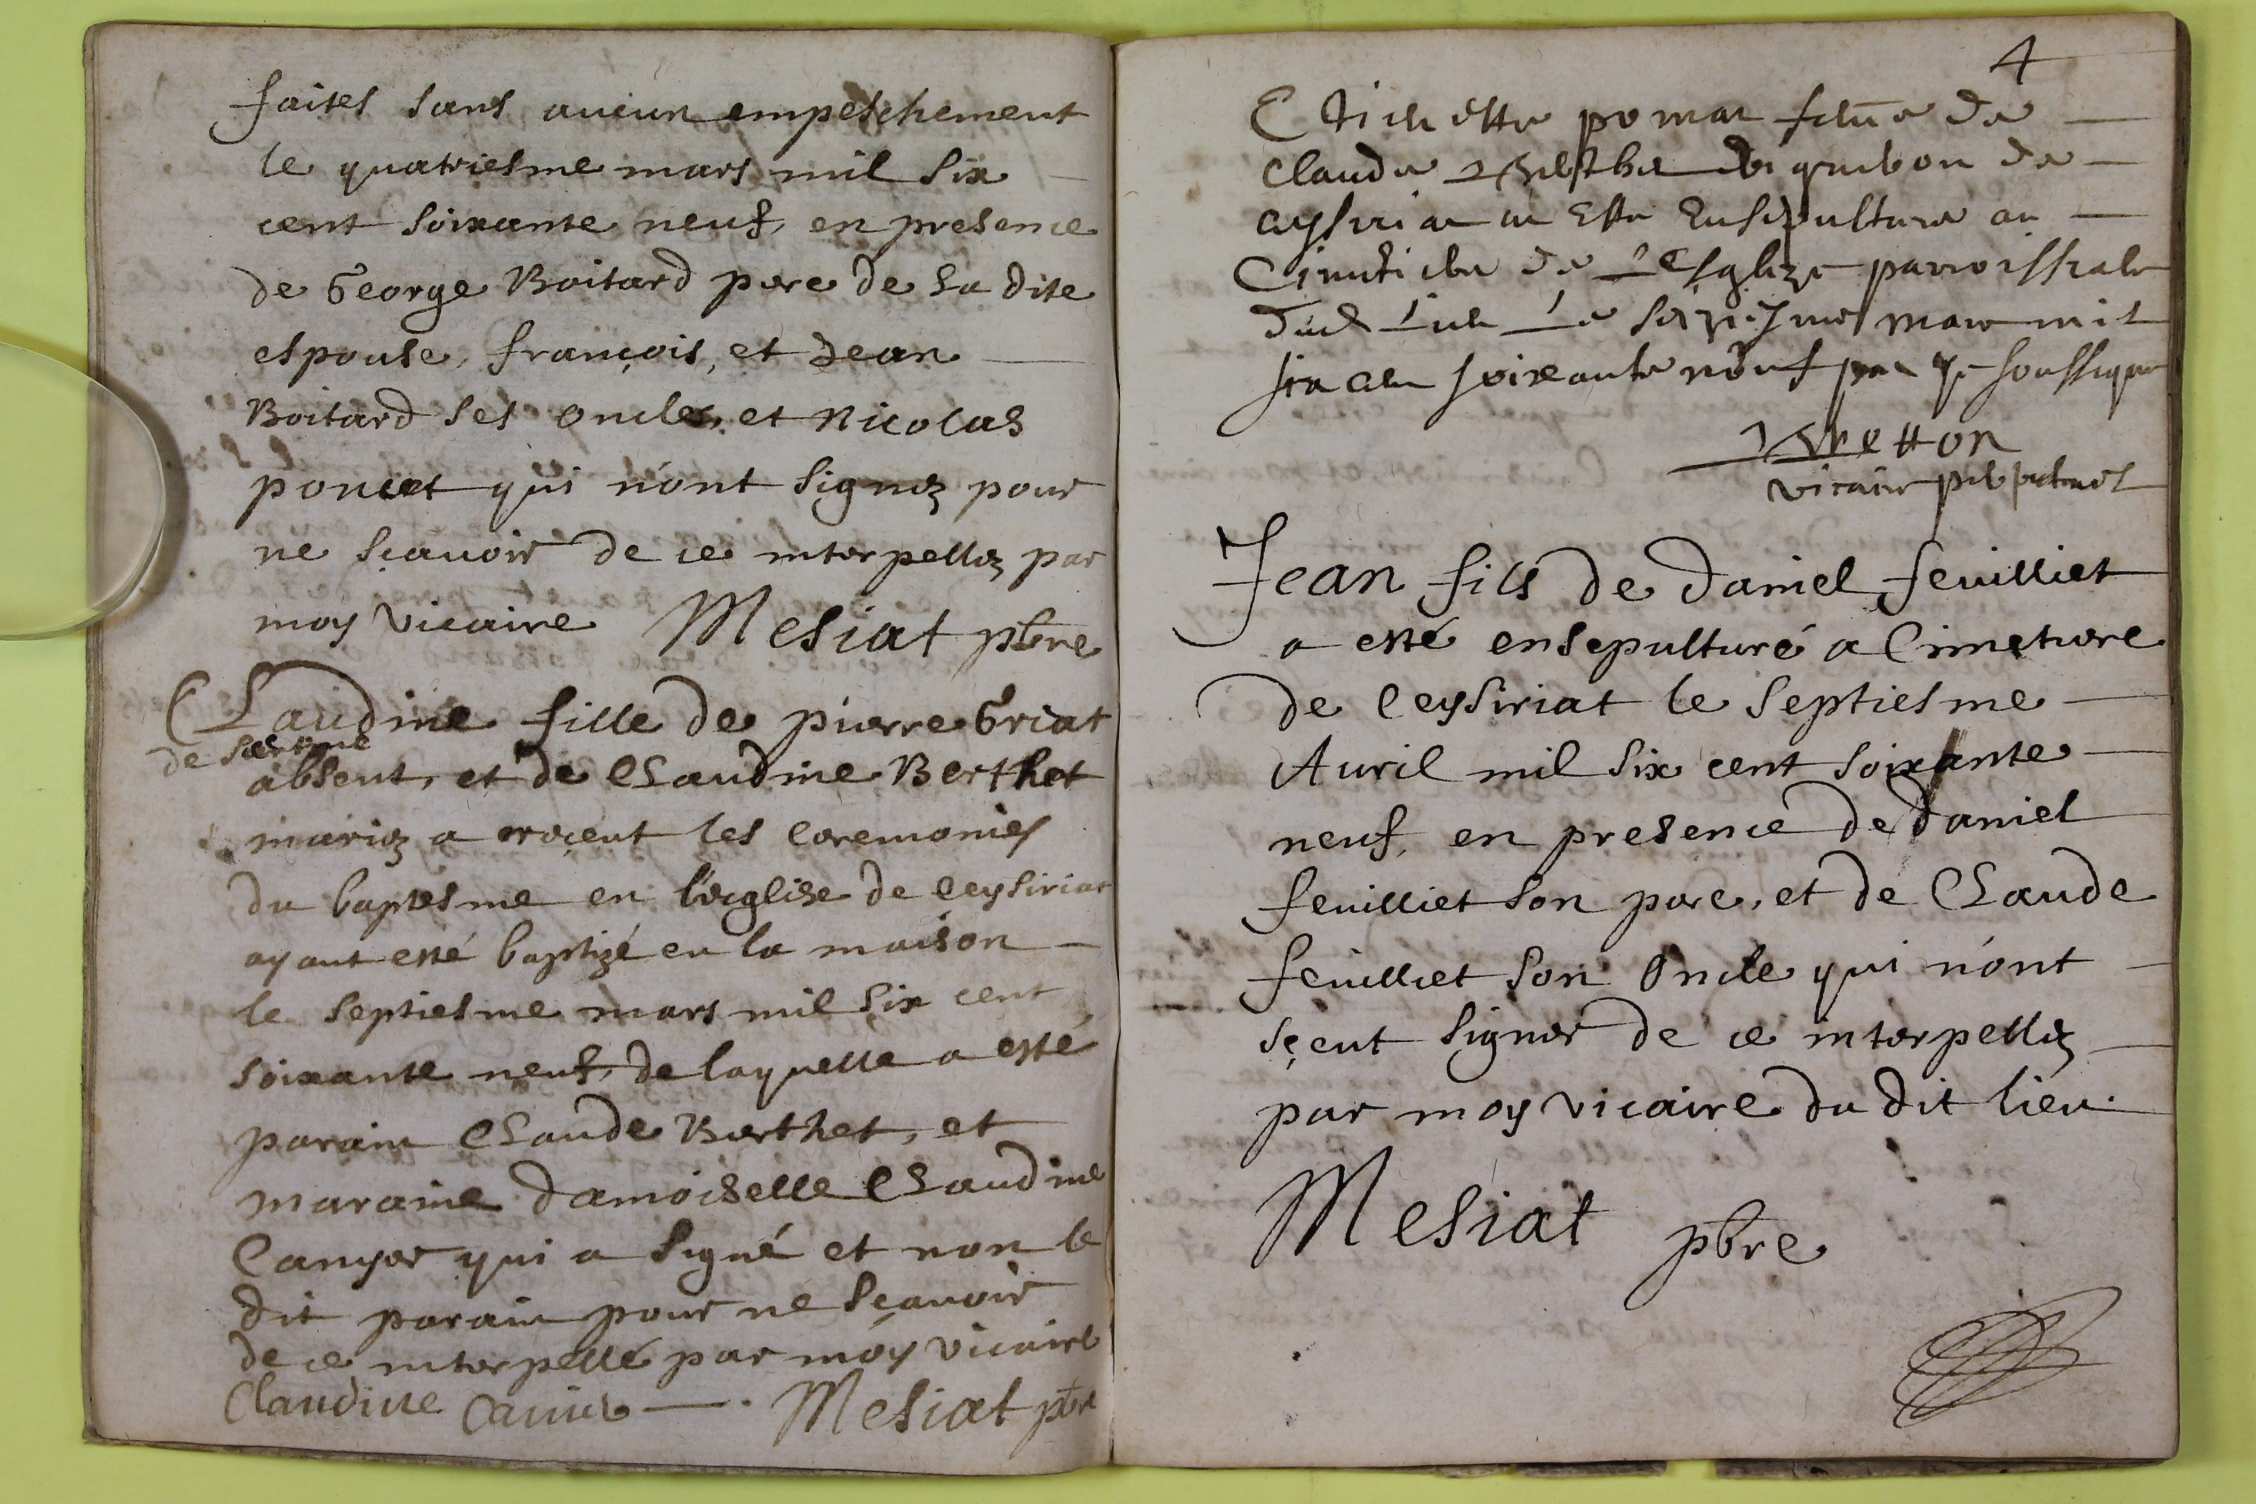 faites sans aucun empeschement
le quatriesme mars mil six
cent soixante neuf, en presence
de George Boitard pere de la dite
espouse, françois, et Jean
Boitard ses oncles, et Nicolas
poncet qui n'ont signez pour
ne sçavoir de ce interpellez par
moy vicaire Mesiat pbre
Claudine fille de pierre Griat
absent, et de Claudine Berthet
mariez a reçeut les ceremonies
du baptesme en l'ecglise de Ceysiriat
ayant esté baptizé en la maison
le septiesme mars mil six cent
soixante neuf, de laquelle a esté
parain Claude Berthet, et
maraine damoiselle Claudine
qui a signé et non le
dit parain pour ne sçavoir
de ce interpellé par moy vicaire
Claudine Mesiat pbre
4
de
Claude de
a esté ensepulturé au
Cimetiere de l'Esglize parroissiale
dud lieu le mars mil
six cen soixante neuf par soussigné
vicaire
Jean fils de daniel feuilliet
a esté ensepulturé a Cimetiere
de Ceysiriat le septiesme
Auril mil six cent soixante
neuf, en presence de daniel
feuilliet son pere, et de Claude
feuilliet son Oncle qui n'ont
sçeut signer de ce interpellez
par moy vicaire du dit lieu.
Mesiat pbre